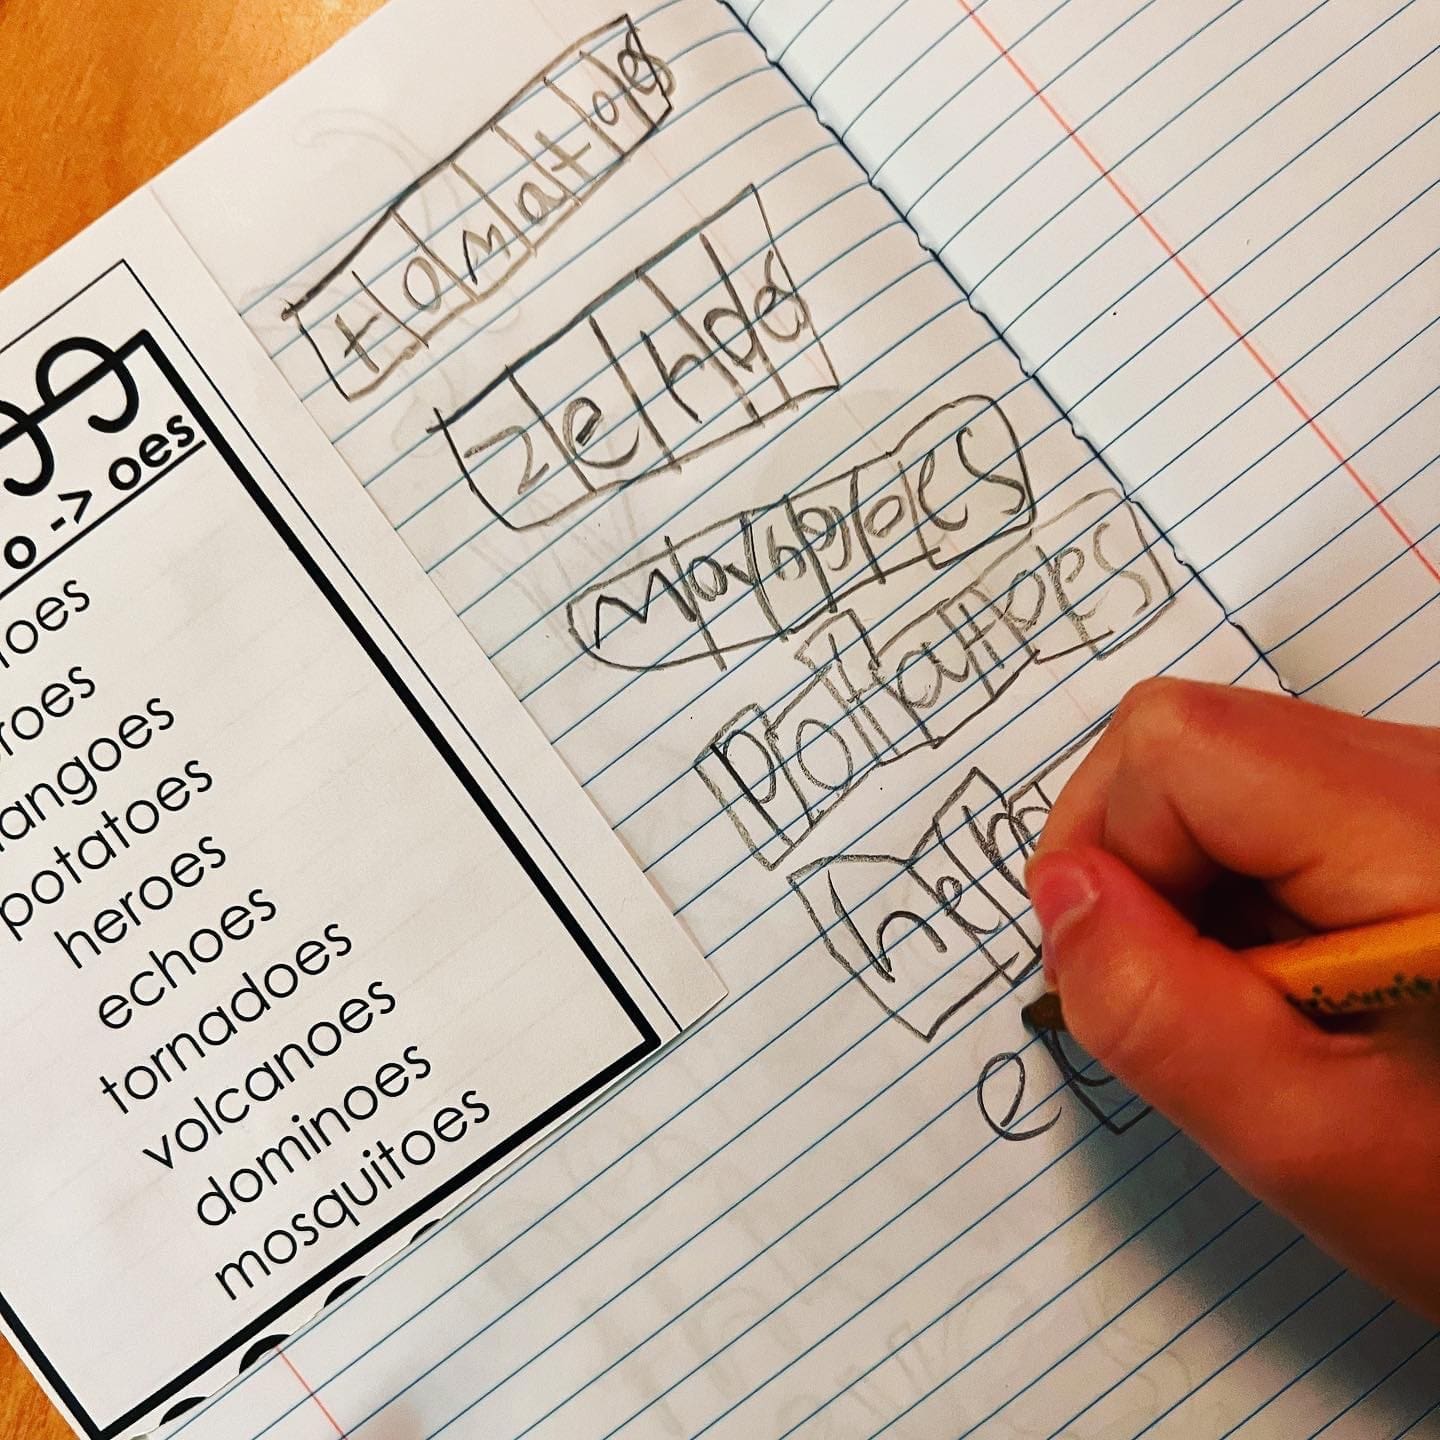 o -> oes
oes
roes
angoes
potatoes
heroes
echoes
tornadoes
volcanoes
dominoes
mosquitoes
tomatoes
mangoes
potatoes
he
e